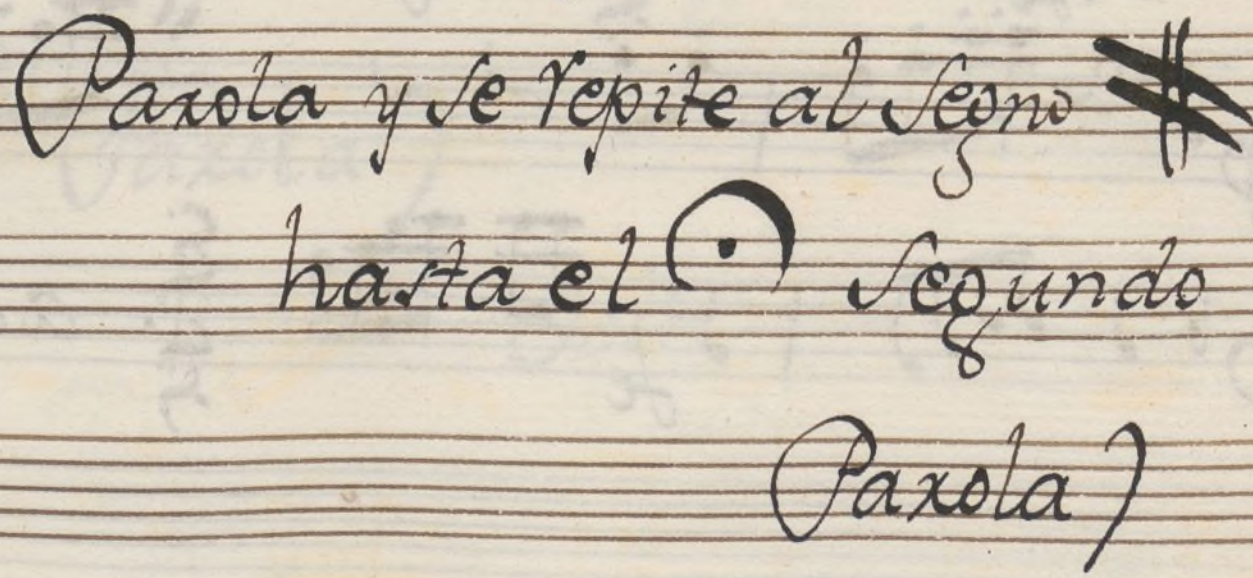 Parola y se repite al Segno
hasta el Segundo
Parola)